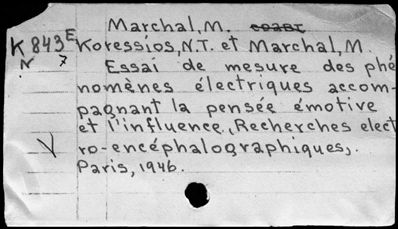 Marchal, M.
K 843 E Koressios, N.T. et Marchal, M.
N 7
Essai de mesure des phé
nomènes électriques accom-
pagnant la pensée émotive
et l'influence, Recherches elect
ro-encéphalographiques,.
Paris, 1946.
V